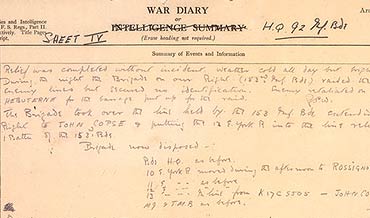 WAR DIARY
or
INTELLIGENCE SUMMARY
(Erase heading not required.)
Army
Intelligence
F. S. Regs., Part II.
ctively. Title Pages
cript.
SHEET IV
H.Q 92 Inf Bde
Summary of Events and Information
Relief was completed without incident, weather cold all day but
During the night the Brigade on our Right (153rd Inf Bde) raided the
enemy lines but secured no identification. Enemy retaliated on
HEBUTERNE for the barrage put up for the raid.
The Brigade took over the line held by the 153 Inf Bde extending
Right to JOHN COPSE & putting the 12 E. York R into the line
1 Battn of the 153 Bde
Brigade now disposed :-
Bde H.Q. as before.
10 E York R moved during the afternoon to ROSSIGNO
11 as before
12 in line from K17c5505 - JOHN CO
M.G & T.M.B as before.